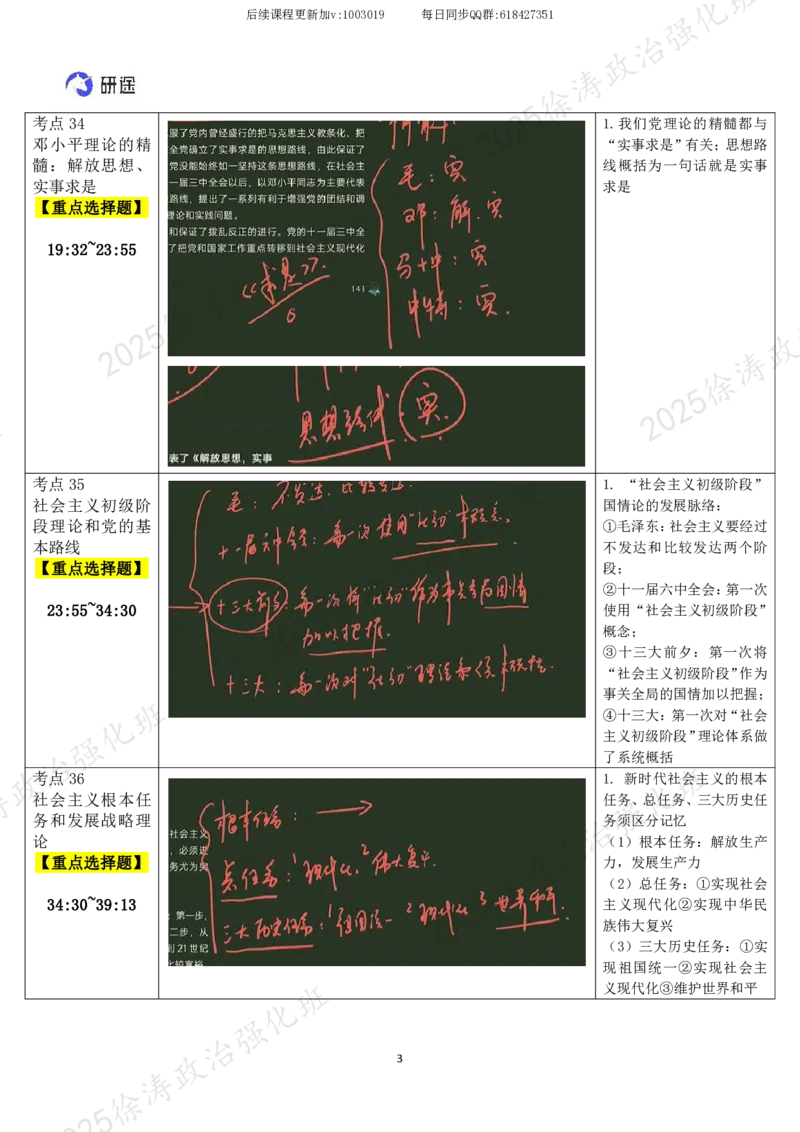 后续课程更新加v:1003019 每日同步QQ群:618427351
研途
考点 34
邓小平理论的精
髓：解放思想、
实事求是
【重点选择题】
19:32~23:55
服了党内曾经盛行的把马克思主义教条化、把
全党确立了实事求是的思想路线，由此保证了
党没能始终如一坚持这条思想路线，在社会主
一届三中全会以后，以邓小平同志为主要代表
路线，提出了一系列有利于增强党的团结和调
理论和实践问题。
和保证了拨乱反正的进行。党的十一届三中全
了把党和国家工作重点转移到社会主义现代化
143
毛：实
邓：解.实
马中：实
中特：实.
《求是》
6
思想路线：实.
表了《解放思想，实事
1.我们党理论的精髓都与
“实事求是”有关；思想路
线概括为一句话就是实事
求是
考点 35
社会主义初级阶
段理论和党的基
本路线
【重点选择题】
23:55~34:30
毛：不发达.比较发达.
十一届六中全会：第一次使用“社初”概念。
十三大前夕：第一次将“社初”作为事关全局国情
加以把握.
十三大：第一次对“社初”理论系统概括.
1. “社会主义初级阶段”
国情论的发展脉络：
①毛泽东：社会主义要经过
不发达和比较发达两个阶
段；
②十一届六中全会：第一次
使用“社会主义初级阶段”
概念；
③十三大前夕：第一次将
“社会主义初级阶段”作为
事关全局的国情加以把握；
④十三大：第一次对“社会
主义初级阶段”理论体系做
了系统概括
考点 36
社会主义根本任
务和发展战略理
论
【重点选择题】
34:30~39:13
社会主义
，必须进
务尤为突
：第一步，
二步，从
到 21 世纪
比较富裕
根本任务：
总任务：1现代化.2伟大复兴.
三大历史任务：1祖国统一 2现代化 3世界和平.
1. 新时代社会主义的根本
任务、总任务、三大历史任
务须区分记忆
（1）根本任务：解放生产
力，发展生产力
（2）总任务：①实现社会
主义现代化②实现中华民
族伟大复兴
（3）三大历史任务：①实
现祖国统一②实现社会主
义现代化③维护世界和平
3
2025徐涛政治强化班